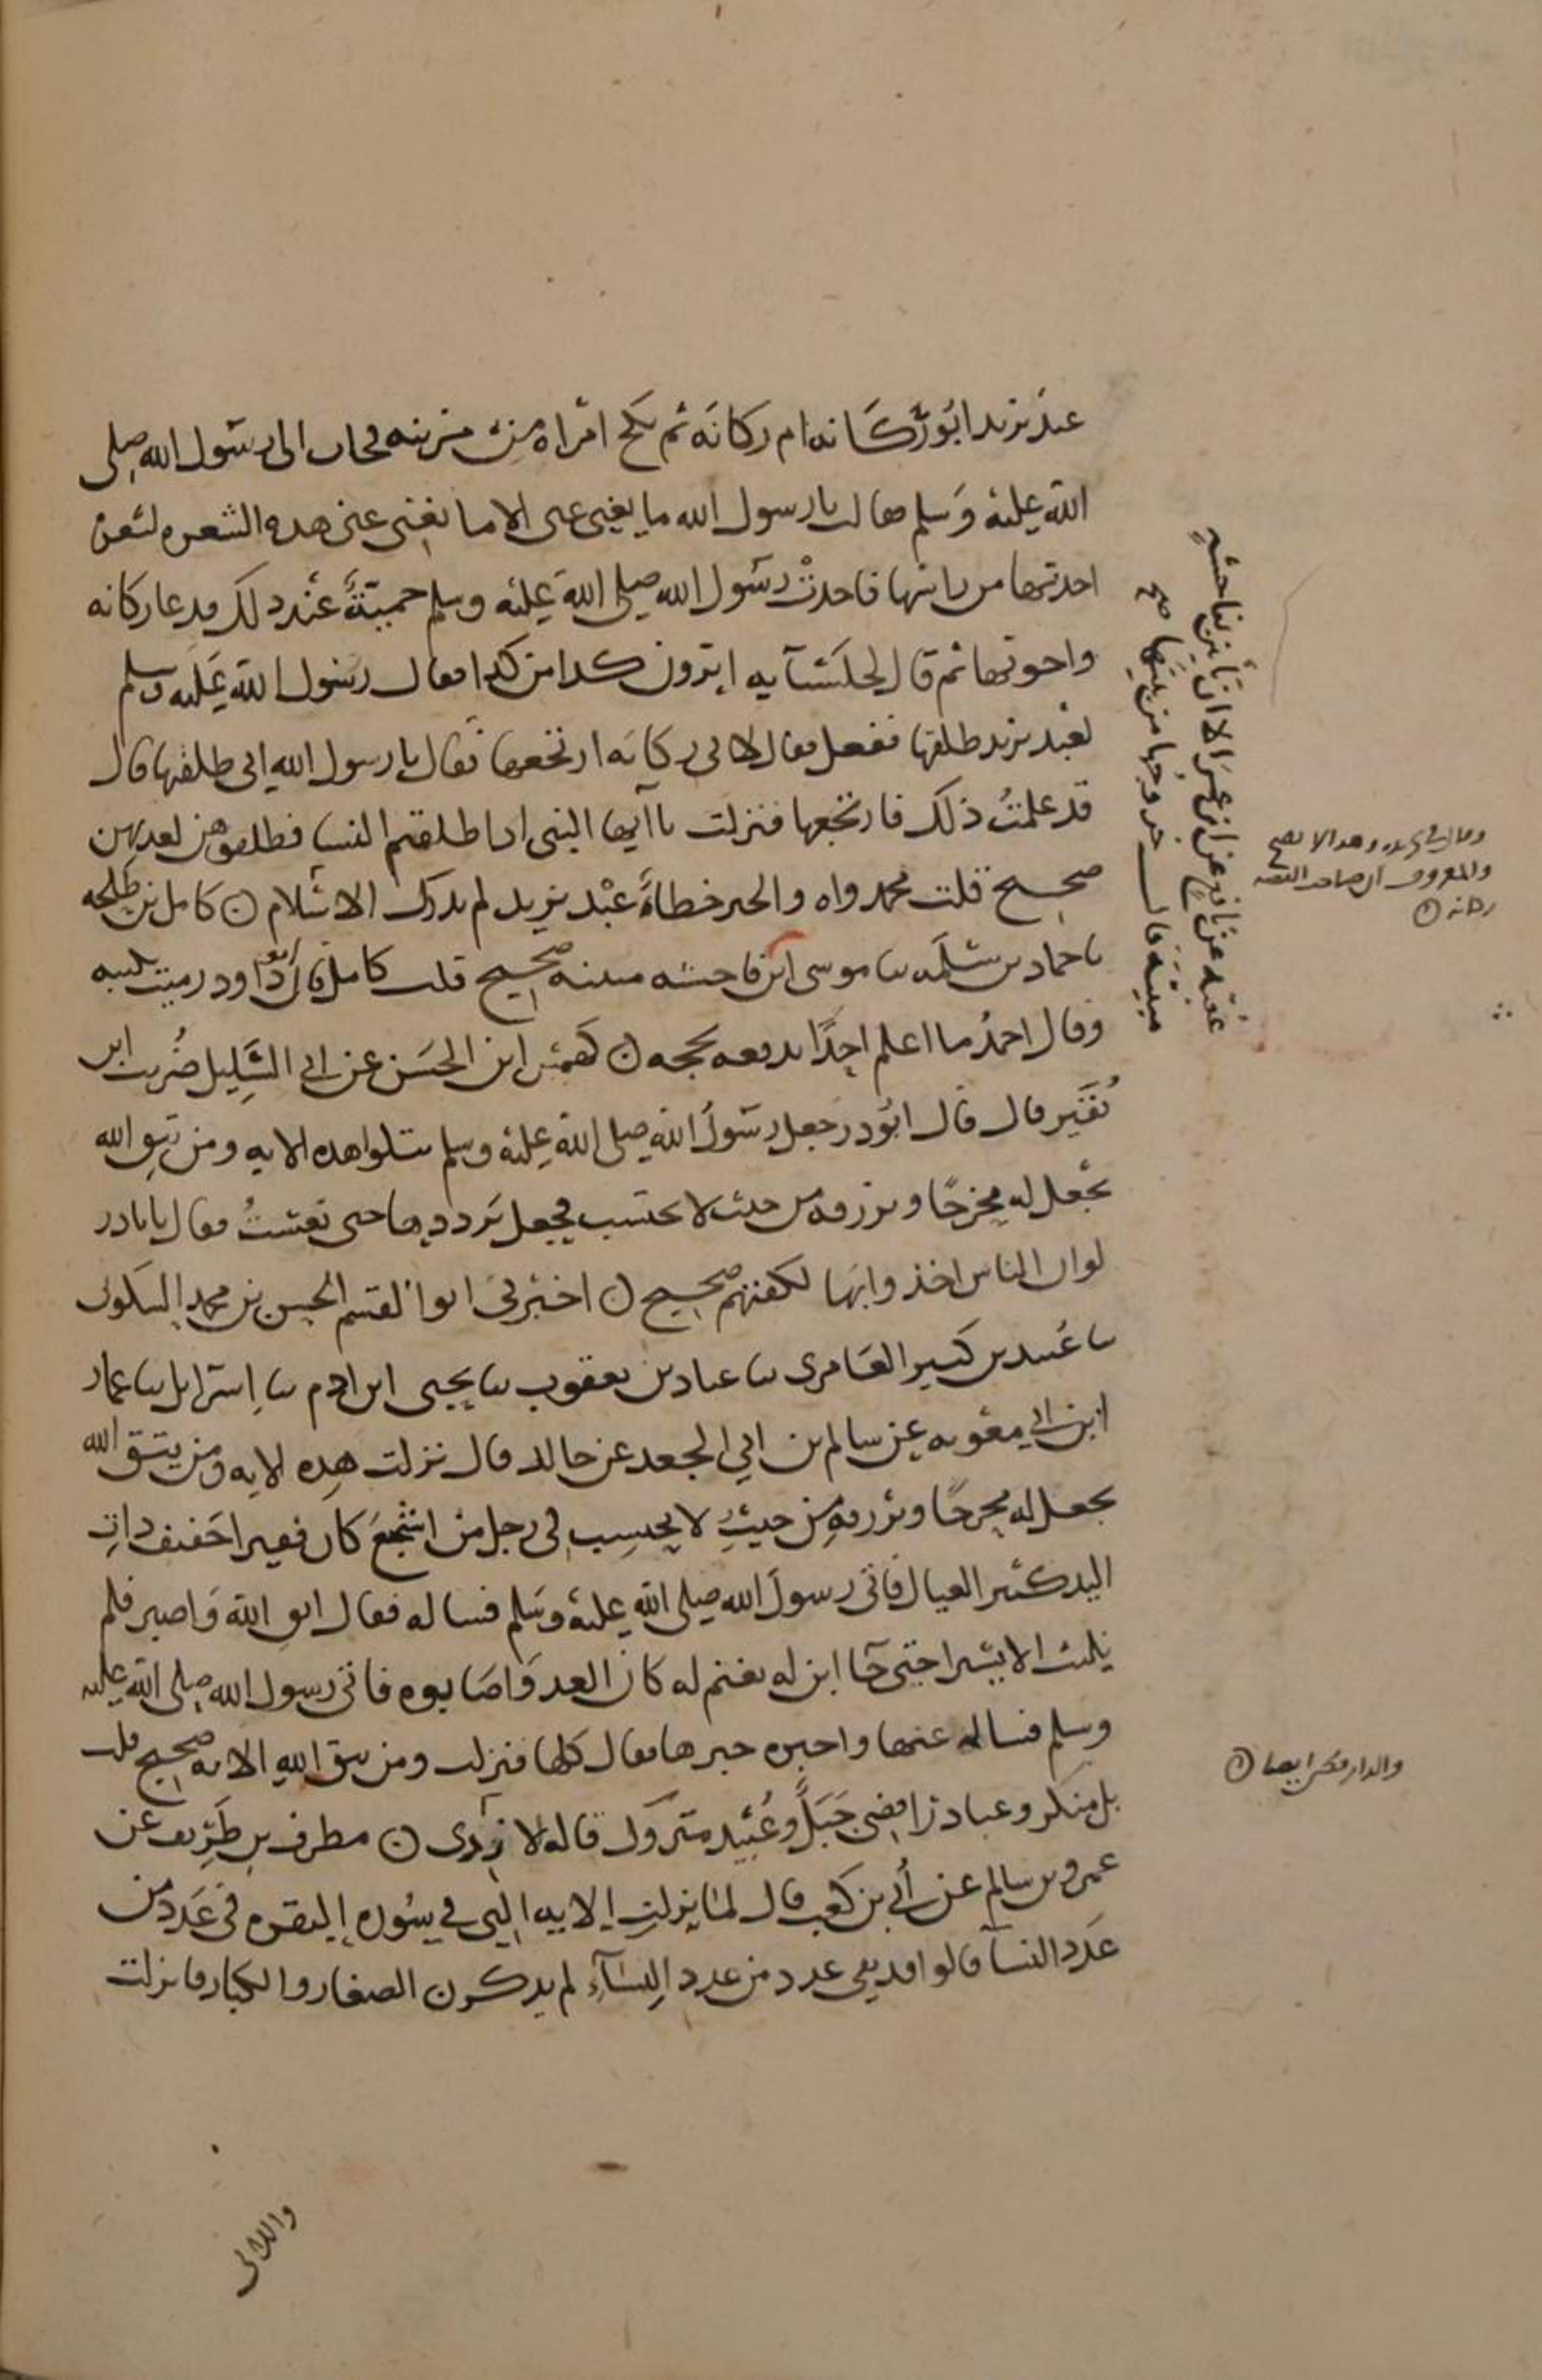 عبد يزيد ابو ركانه ام ركانه ثم نكح امراه من مزينه فجات الى رسول الله صلى
الله عليه وسلم فقالت يا رسول الله ما يغنى عنى الا ما يغنى عنى هذه الشعره لشعره
اخذتها من راسها فاخذت رسول الله صلى الله عليه وسلم حمية عند ذلك فدعا ركانه
واخوتها ثم قال لجلسآيه اترون كذا من كذا فقال رسول الله عليه وسلم
لعبد يزيد طلقها ففعل فقال لابى ركانه ارتجعها فقال يا رسول الله انى طلقتها قال
قد علمت ذلك فارتجعها فنزلت يا ايها النبى اذا طلقتم النسا فطلقوهن لعدتهن
صحيح قلت محمد واه والخبر خطاء عبد يزيد لم يدرك الاسلام ن كامل بن طلحه
نا حماد بن سلمه نا موسى ابن فاحشه مبينه صحيح قلت كامل قال ابو داود رميت بكتبه
وقال احمد ما اعلم احدا يدفعه بحجه ن كهمس ابن الحسن عن ابى السليل ضريب ابن
نقير قال قال ابو ذر جعل رسول الله صلى الله عليه وسلم يتلوا هذه الايه ومن يتق الله
يجعل له مخرجا ويرزقه من حيث لا يحتسب فجعل يرددها حتى نعست فقال يا با ذر
لو ان الناس اخذوا بها لكفتهم صحيح ن اخبرنى ابوا لقسم الحسن بن محمد السكونى
نا عبيد بن كثير العامرى نا عباد بن يعقوب نا يحيى ابن ادم نا اسرائل نا عمار
ابن ابى معويه عن سالم بن ابى الجعد عن جابر قال نزلت هذه الايه ومن يتق الله
يجعل له مخرجا ويرزقه من حيث لا يحتسب فى رجل من اشجع كان فقيرا خفيف ذات
اليد كثير العيال فاتى رسول الله صلى الله عليه وسلم فساله فقال اتق الله واصبر فلم
يلبث الا يسيرا حتى جا ابن له بغنم له كان العدو اصابوه فاتى رسول الله صلى الله عليه
وسلم فساله عنها واخبره خبرها فقال كلها فنزلت ومن يتق الله الايه صحيح قلت
بل منكر وعباد رافضى جبل وعبيد متروك قاله الازدى ن مطرف بن طريف عن
عمرو بن سالم عن أبى بن كعب قال لما نزلت الايه التى فى سوره البقره فى عدد من
عدد النسآ قالوا قد بقى عدد من عدد النسآء لم يذكرن الصغار والكبار فانزلت
عقبه عن نافع عن ابن عمر الا ان ياتين بفاحشه
مبينة قال خروجها من بيتها صح
وقال فى تجريده وهذا لا يصح
والمعروف ان صاحب القصه
ركانه ن
والدارقطنى ايضا ن
واللائى